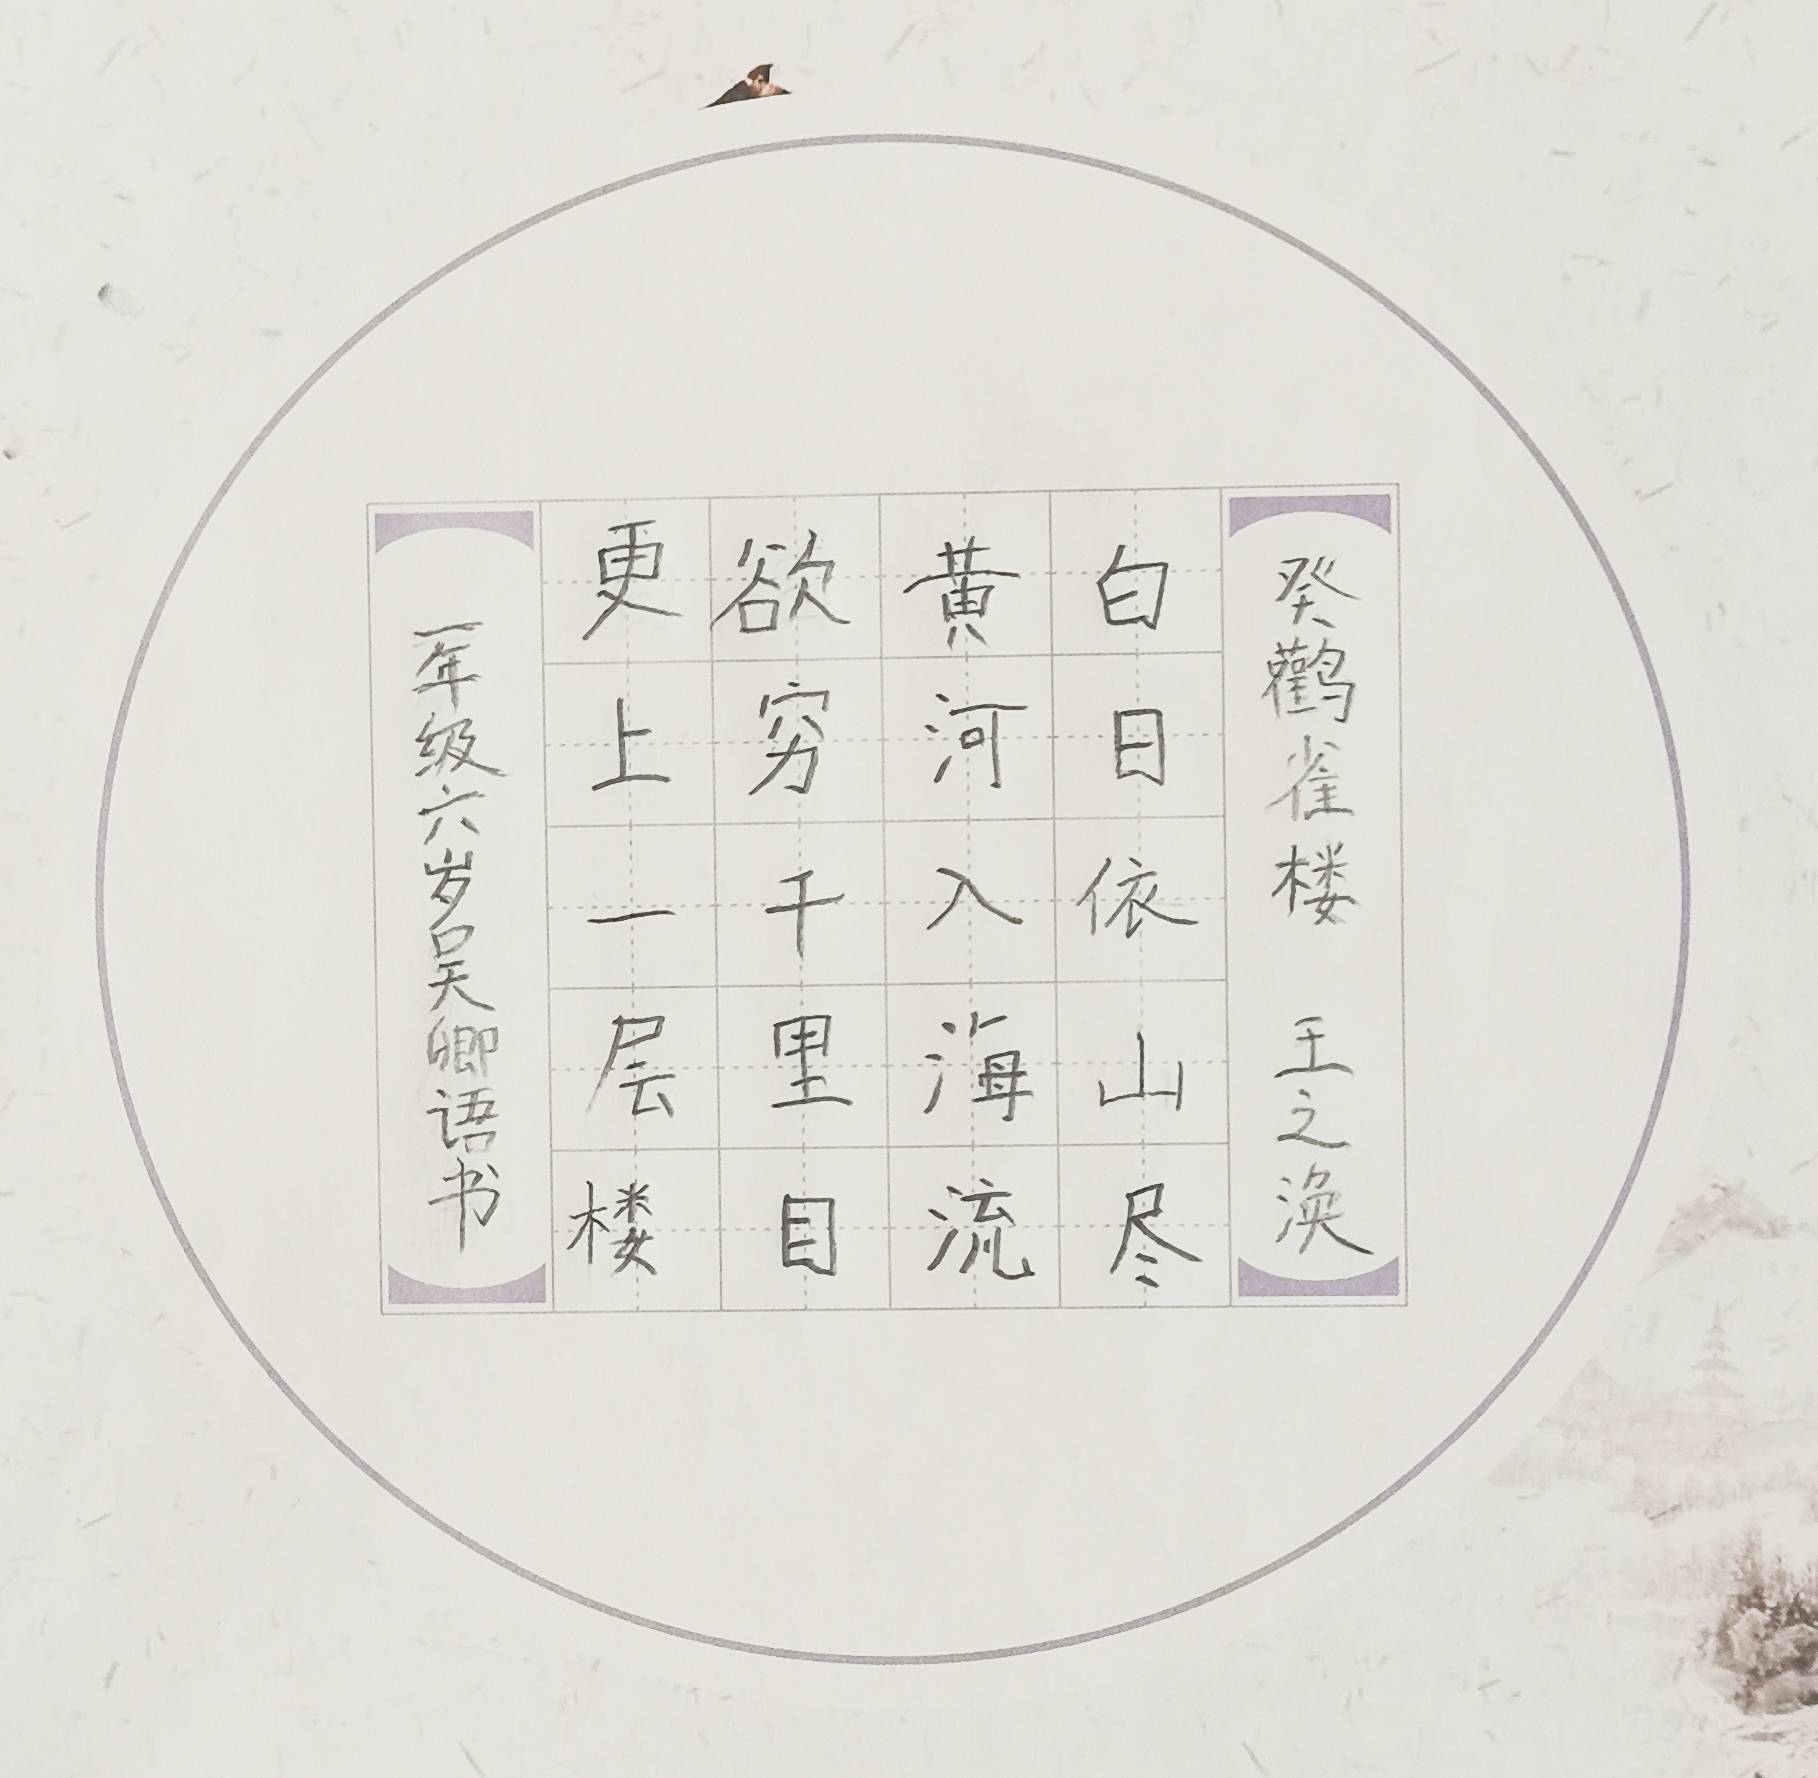 癸鹳雀楼 王之涣
白日依山尽
黄河入海流
欲穷千里目
更上一层楼
一年级六岁吴卿语书